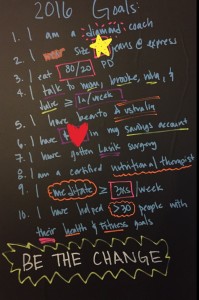 2016 Goals:
1. I am a diamond coach
2. I wear size jeans @ express
3. I eat 80/20 PD
4. I talk to mom, brooke, &
Julie ≥ 1x/week
5. I have been to
6. I have $ in my savings account
7. I have gotten Lasik surgery
8. I am a certified nutrition/therapist
9. I meditate ≥ 3xs/week
10. I have helped >30 people with
their health & fitness goals
BE THE CHANGE